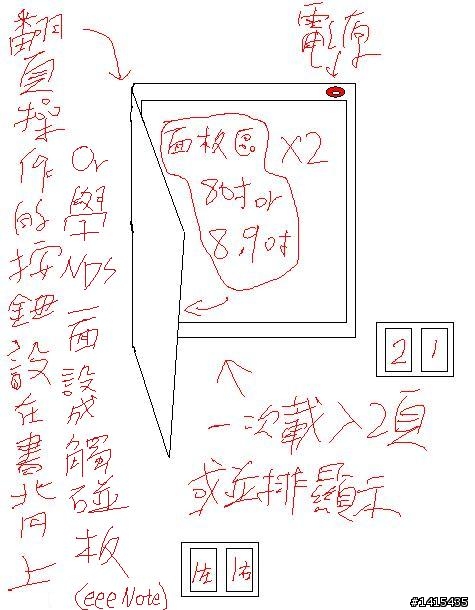 翻頁操作的按鈕設在書背上
or學NDS一面設成觸碰板
(eee Note)
電源
面板區 X2
8.0吋or
8.9吋
2 1
一次載入2頁
或並排顯示
左 右
#1415435